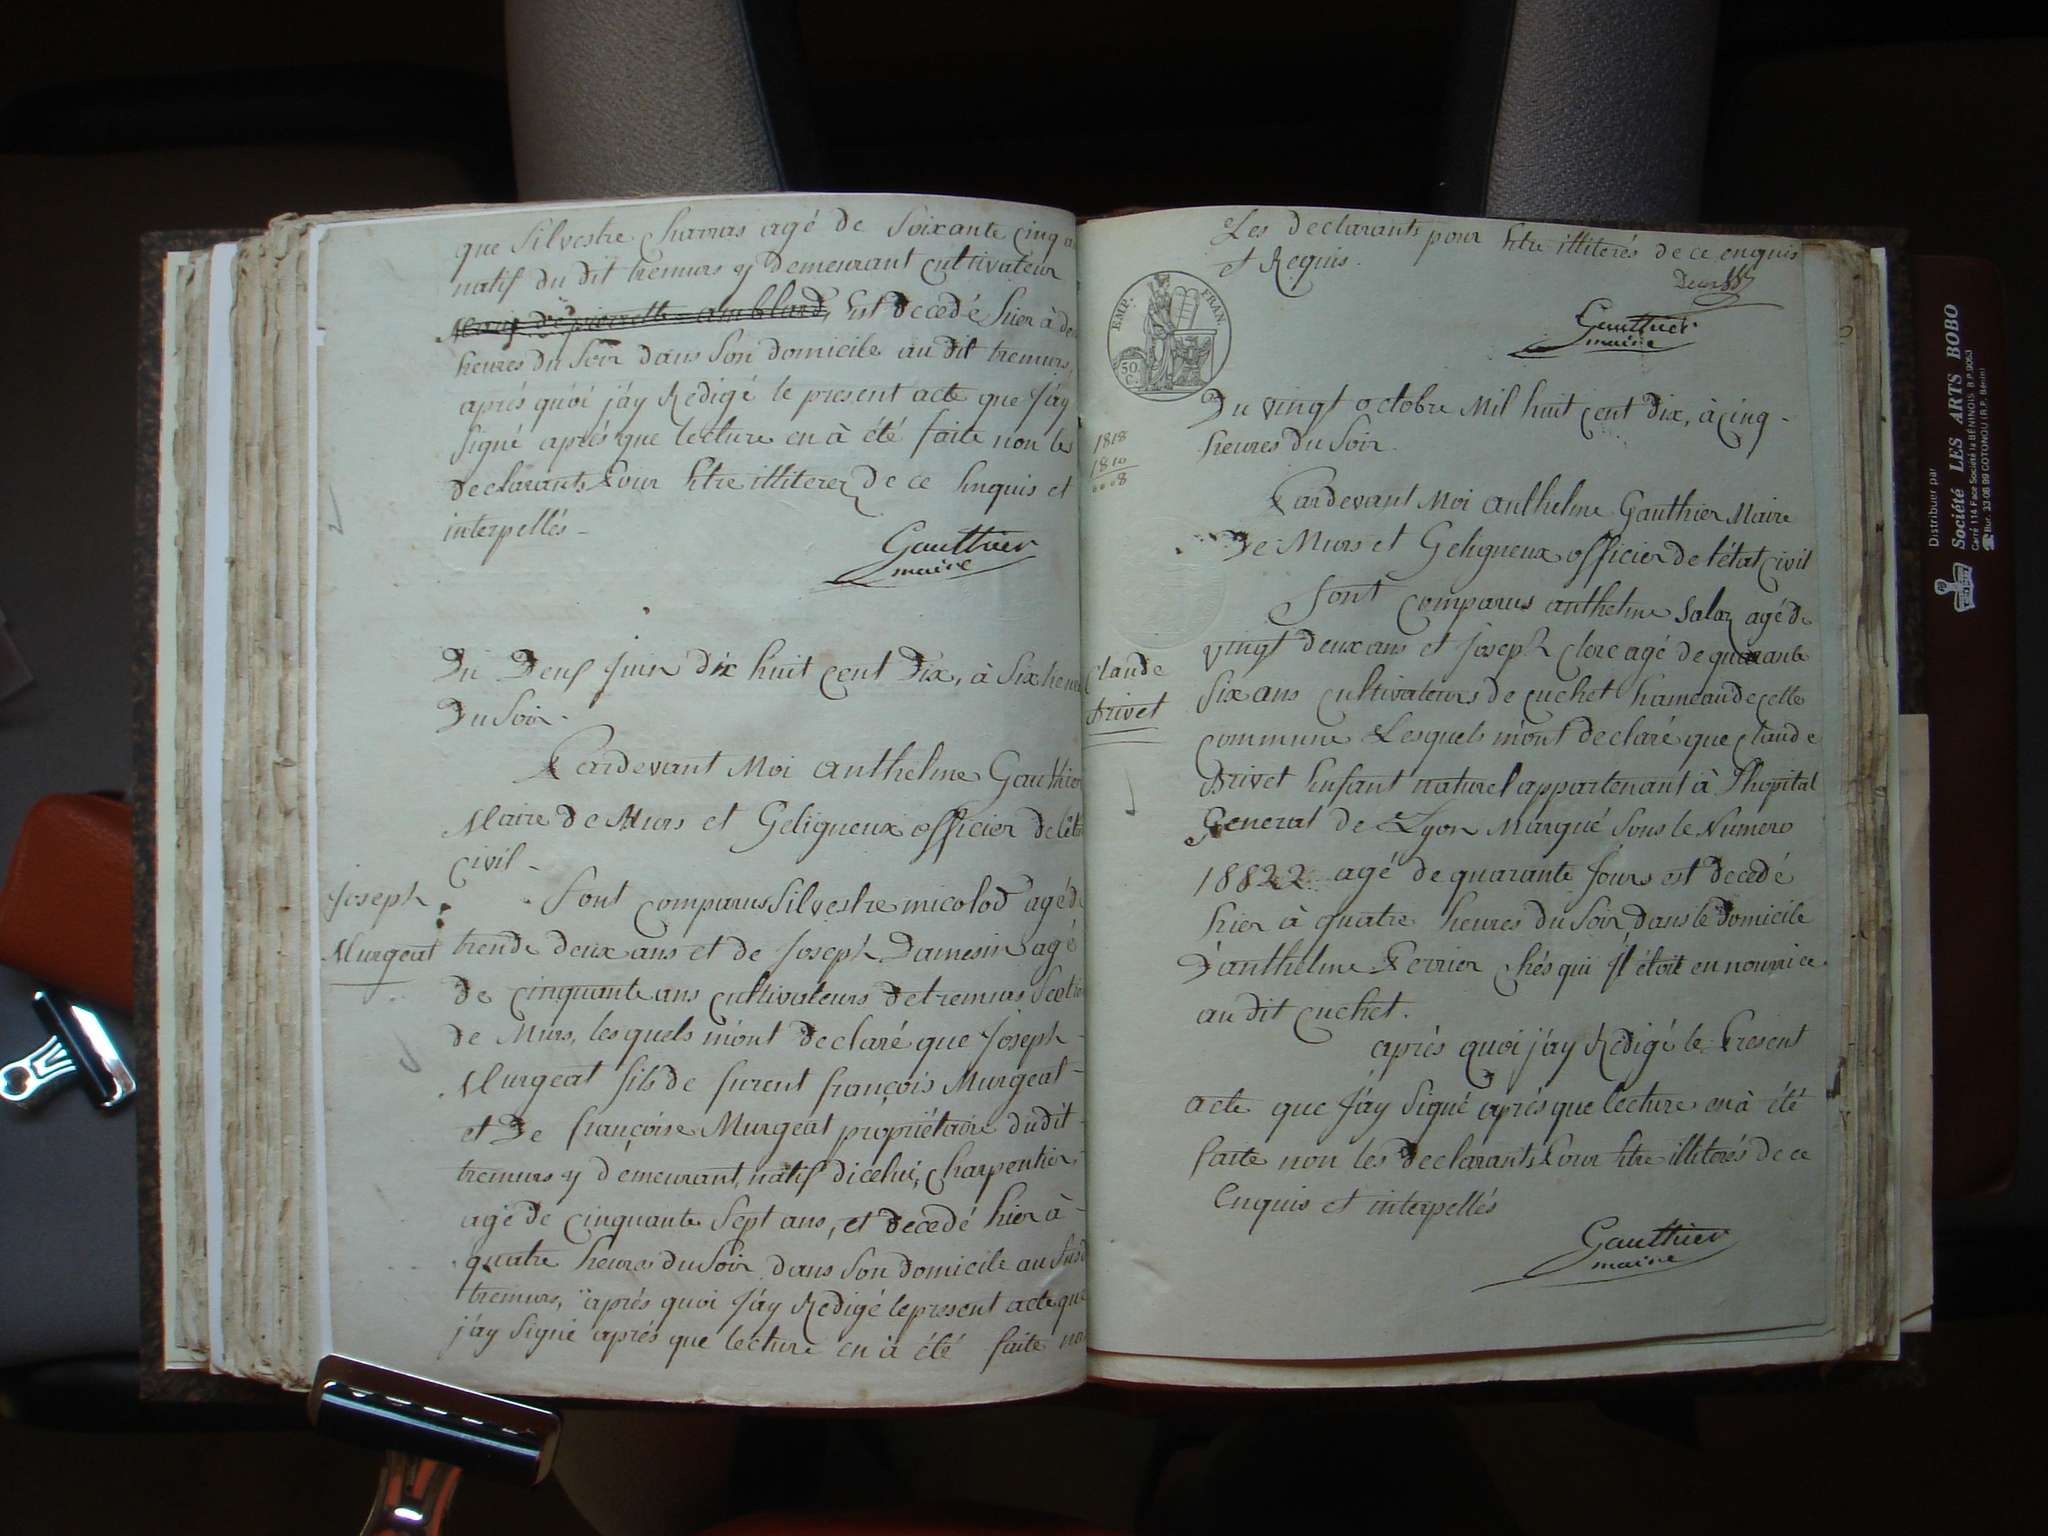 que Silvestre Charvas agé de Soixante cinq a
natif du dit tremurs y demeurant cultivateur
Est decedé hier à de
heures du Soir dans Son domicile au dit tremurs,
aprés quoi j'ay Redigé le present acte que J'ay
Signé aprés que lecture en à été faite non les
declarants Pour Etre illiterez de ce Enquis et
interpellés -
Gauthier
maire
Du Deuf Juin dix huit cent Dix, à Six heures
Du Soir.
Pardevant Moi anthelme Gauthier
Maire de Murs et Geligneux officier de l'état
civil -
Joseph
Murgeat
Sont comparus Silvestre micolod agé de
trende deux ans et de Joseph Damesin agé
de cinquante ans cultivateurs de tremurs Section
de Murs, lesquels m'ont declaré que Joseph
Murgeat fils de furent françois Murgeat
et De françoise Murgeat propriétaire dudit
tremurs y demeurant, natif dicelui, Charpentier,
agé de cinquante Sept ans, et decedé hier à
quatre heures du Soir dans Son domicile au Susd
tremurs, aprés quoi J'ay Redigé le present acte que
j'ay Signé aprés que lecture en à été faite non
Les declarants pour Etre illiterés de ce enquis
et Requis.
Gauthier
maire
EMP. FRAN.
50
C.
1818
1810
0008
Du vingt octobre Mil huit cent Dix, à cinq
heures du Soir.
Pardevant Moi anthelme Gauthier Maire
De Murs et Geligneux officier de l'état civil
Claude
Brivet
Sont comparus anthelme Salaz agé de
vingt deux ans et Joseph Clerc agé de quarante
Six ans cultivateurs de cuchet hameau de cette
commune Lesquels m'ont declaré que Claude
Brivet Enfant naturel appartenant à l'hopital
General de Lyon Marqué Sous le Numero
18822 agé de quarante Jours est decedé
hier à quatre heures du Soir dans le domicile
D'anthelme Perrier chés qui Il étoit en nourrice
au dit cuchet.
aprés quoi j'ay Redigé le Present
acte que J'ay Signé aprés que lecture en à été
faite non les declarants Pour Etre illiterés de ce
Enquis et interpellés
Gauthier
maire
Distribuer par
Société LES ARTS BOBO
Carré 114 Face Société la BENINOIS B.P. 9053
Bur. 33 06 99 COTONOU (R.P. Bénin)